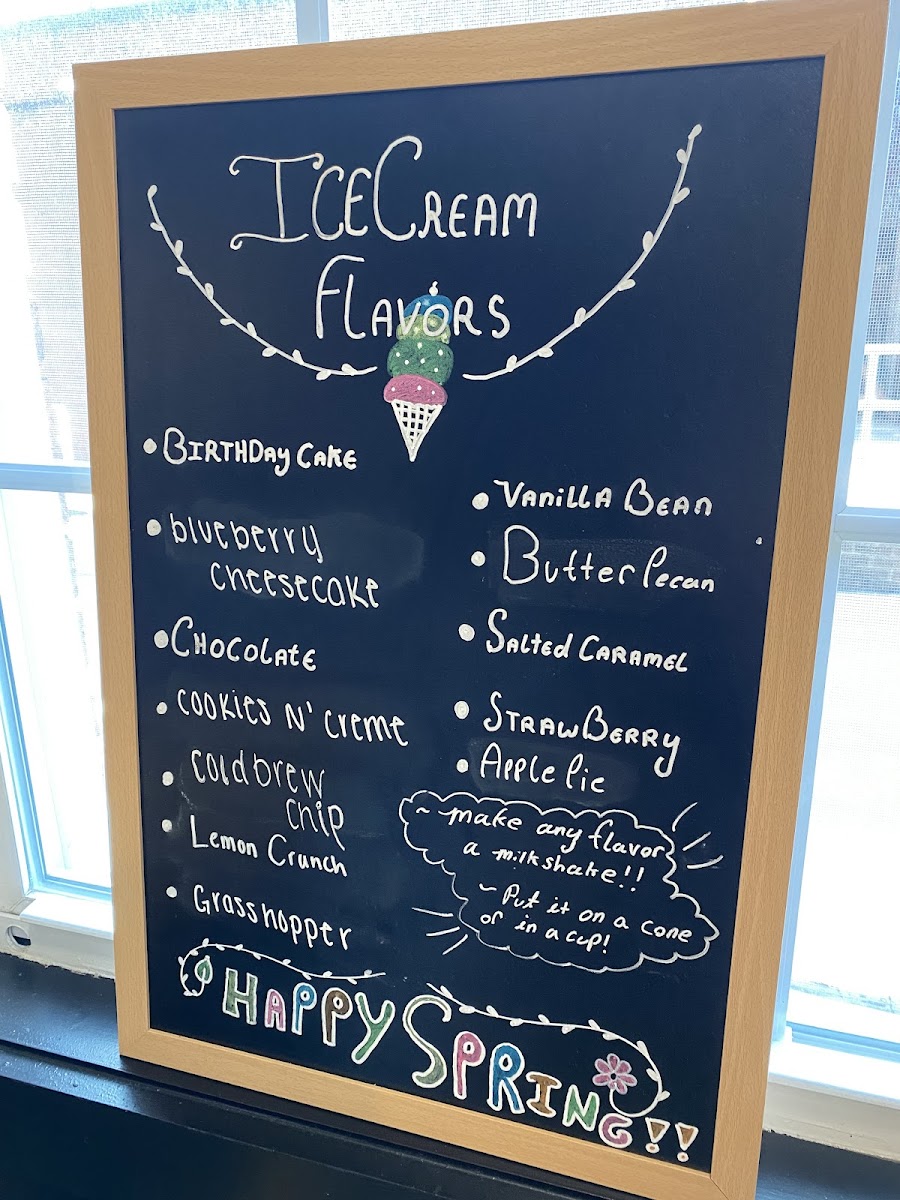 IceCream
Flavors
• Birthday Cake
• blueberry
cheesecake
• Chocolate
• cookies N' creme
• cold brew
chip
• Lemon Crunch
• Grasshopper
• Vanilla Bean
• Butter Pecan
• Salted Caramel
• Strawberry
• Apple Pie
~ make any flavor
a milkshake!!
~ Put it on a cone
or in a cup!
Happy Spring!!